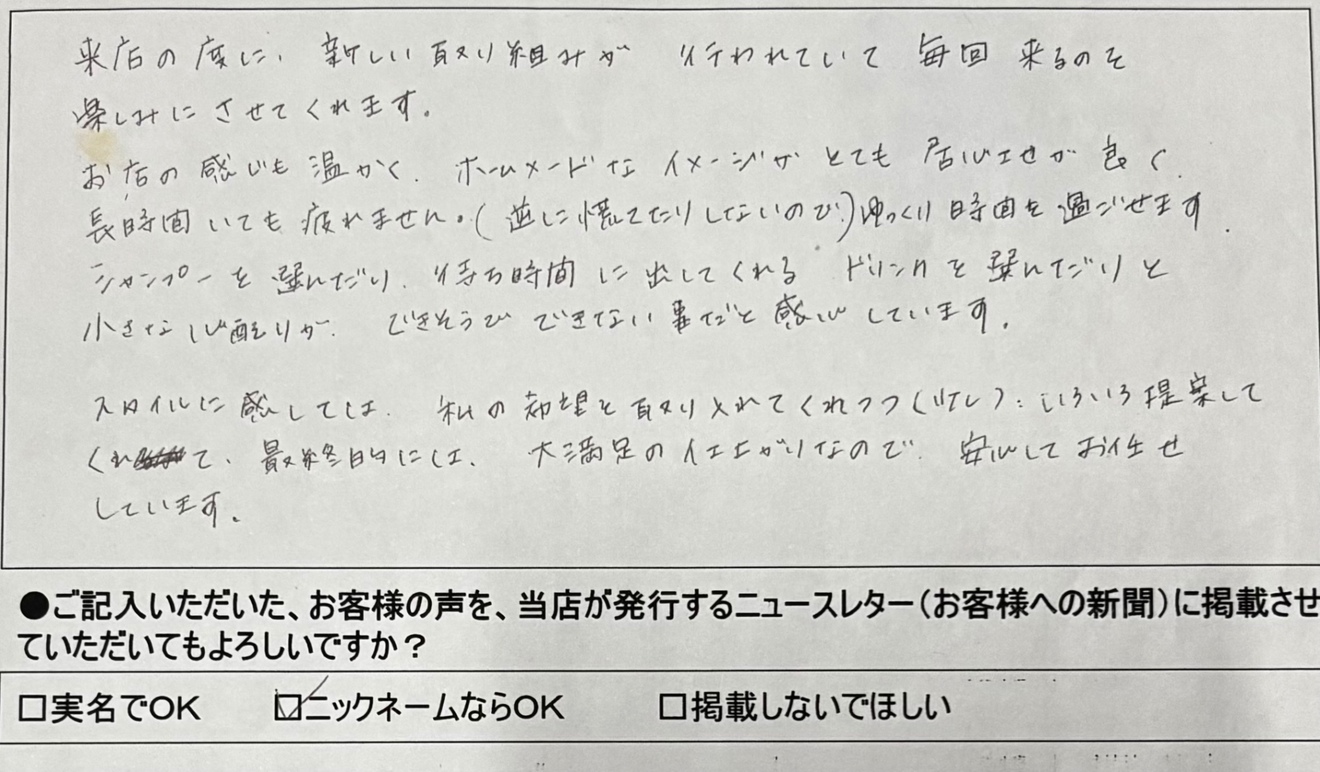 来店の度に、新しい取り組みが 行われていて 毎回 来るのを
楽しみにさせてくれます。
お店の感じも温かく、ホームメードなイメージがとても居心地が良く、
長時間いても疲れません。(逆に慌てたりしないので)ゆっくり時間を過ごせます。
シャンプーを選んだり、待ち時間に出してくれるドリンクを選んだりと
小さな心配りが、できそうでできない事だと感心しています。
スタイルに感しては、私の希望を取り入れてくれつつ いろいろ提案して
くれて、最終的には、大満足の仕上がりなので、安心してお任せ
しています。
●ご記入いただいた、お客様の声を、当店が発行するニュースレター(お客様への新聞)に掲載させ
ていただいてもよろしいですか?
□実名でOK ☑ニックネームならOK □掲載しないでほしい